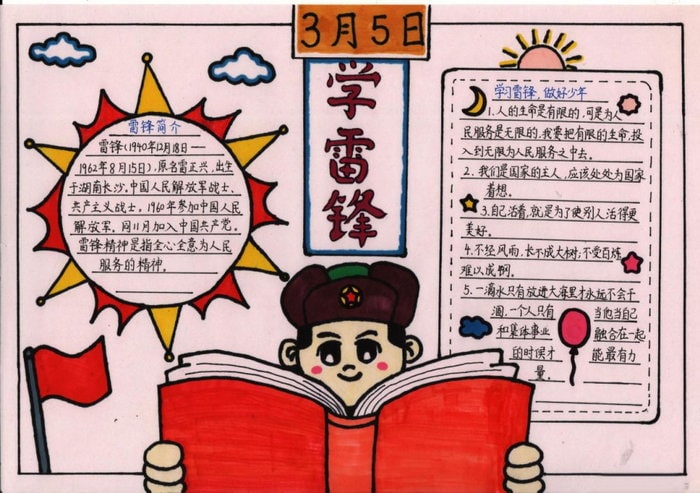 3月5日
学雷锋
雷锋简介
雷锋(1940年12月18日——
1962年8月15日),原名雷正兴,出生
于湖南长沙,中国人民解放军战士、
共产主义战士。1960年参加中国人民
解放军,同11月加入中国共产党。
雷锋精神是指全心全意为人民
服务的精神。
学习雷锋,做好少年
1.人的生命是有限的,可是为人
民服务是无限的,我要把有限的生命,投
入到无限为人民服务之中去。
2.我们是国家的主人,应该处处为国家
着想。
3.自己活着,就是为了使别人活得更
美好。
4.不经风雨,长不成大树;不受百炼,
难以成钢。
5.一滴水只有放进大海里才永远不会干
涸,一个人只有 当他当自己
和集体事业 融合在一起
的时候才 能最有力
量。